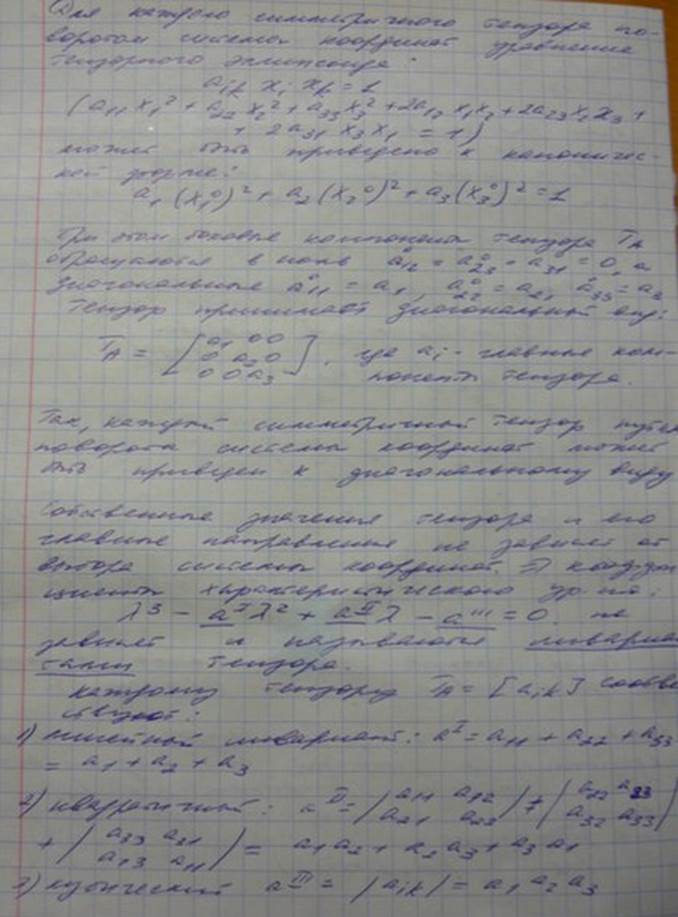 Для каждого симметричного тензора по-
воротом системы координат уравнение
тензорного эллипсоида:
a_ik x_i x_k = 1
(a₁₁x₁² + a₂₂x₂² + a₃₃x₃² + 2a₁₂x₁x₂ + 2a₂₃x₂x₃ +
+ 2a₃₁x₃x₁ = 1)
может быть приведено к каноничес-
кой форме:
a₁(x₁⁰)² + a₂(x₂⁰)² + a₃(x₃⁰)² = 1
При этом боковые компоненты тензора T_A
обращаются в ноль a₁₂⁰ = a₂₃⁰ = a₃₁⁰ = 0, а
диагональные a₁₁⁰ = a₁, a₂₂⁰ = a₂, a₃₃⁰ = a₃
Тензор принимает диагональный вид:
T_A = [a₁ 0 0
0 a₂ 0
0 0 a₃], где a_i - главные ком-
поненты тензора.
Так, каждый симметричный тензор путем
поворота системы координат может
быть приведен к диагональному виду
Собственные значения тензора и его
главные направления не зависят от
выбора системы координат. ⇒ коэффи
циенты характеристического ур-ия:
λ³ - a^I λ² + a^II λ - a^III = 0 не
зависят и называются инвариан
тами тензора.
Каждому тензору T_A = [a_ik] соотве
ствуют:
1) линейный инвариант: a^I = a₁₁ + a₂₂ + a₃₃
= a₁ + a₂ + a₃
2) квадратичный: a^II = |a₁₁ a₁₂
a₂₁ a₂₂| + |a₂₂ a₂₃
a₃₂ a₃₃|
+ |a₃₃ a₃₁
a₁₃ a₁₁| = a₁a₂ + a₂a₃ + a₃a₁
3) кубический a^III = |a_ik| = a₁a₂a₃